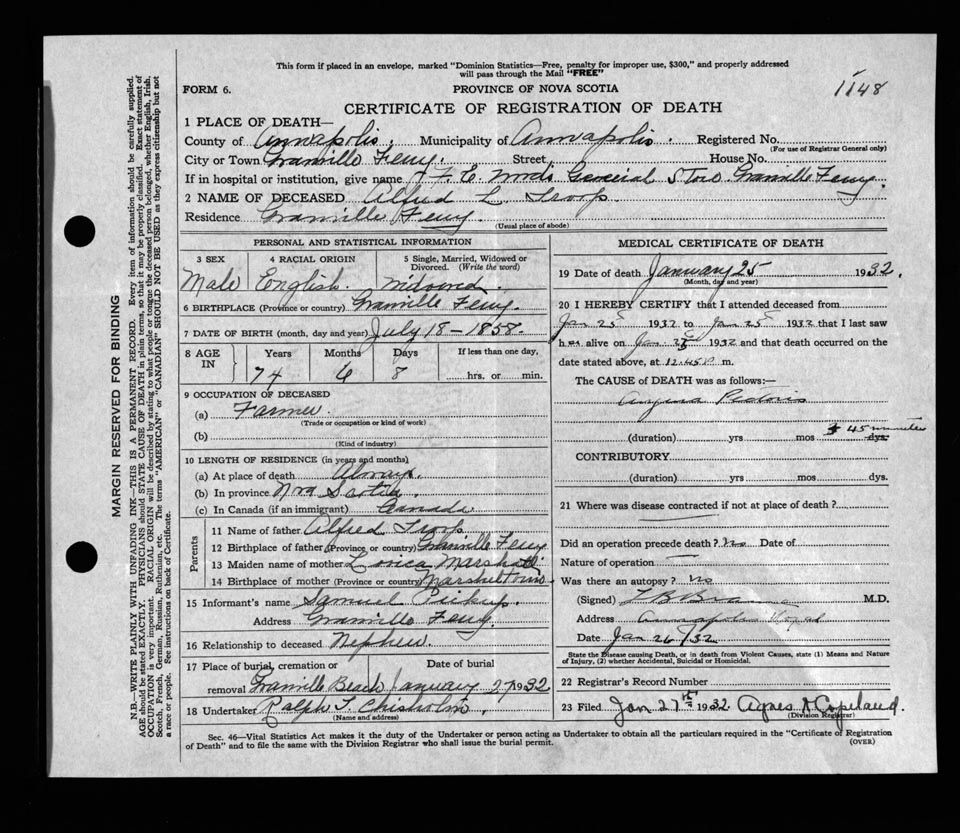 This form if placed in an envelope, marked "Dominion Statistics—Free, penalty for improper use, $300," and properly addressed
will pass through the Mail "FREE"
FORM 6.
PROVINCE OF NOVA SCOTIA
1148
CERTIFICATE OF REGISTRATION OF DEATH
1 PLACE OF DEATH—
County of Annapolis. Municipality of Annapolis. Registered No.
(For use of Registrar General only)
City or Town Granville Ferry. Street House No.
If in hospital or institution, give name General Store Granville Ferry.
2 NAME OF DECEASED Alfred L. Troop
Residence Granville Ferry
(Usual place of abode)
PERSONAL AND STATISTICAL INFORMATION
3 SEX 4 RACIAL ORIGIN 5 Single, Married, Widowed or Divorced. (Write the word)
Male English. Widowed.
6 BIRTHPLACE (Province or country) Granville Ferry.
7 DATE OF BIRTH (month, day and year) July 18-1858.
8 AGE IN Years Months Days If less than one day,
74 6 8 hrs. or min.
9 OCCUPATION OF DECEASED
(a) Farmer.
(Trade or occupation or kind of work)
(b)
(Kind of industry)
10 LENGTH OF RESIDENCE (in years and months)
(a) At place of death Always.
(b) In province Nova Scotia.
(c) In Canada (if an immigrant) Canada
Parents
11 Name of father Alfred Troop
12 Birthplace of father (Province or country) Granville Ferry
13 Maiden name of mother Marshall
14 Birthplace of mother (Province or country) Marshalltown
15 Informant's name Samuel Pickup.
Address Granville Ferry.
16 Relationship to deceased Nephew.
17 Place of burial, cremation or removal Date of burial
Granville Beach January 27 1932
18 Undertaker Ralph T. Chisholm.
(Name and address)
MEDICAL CERTIFICATE OF DEATH
19 Date of death January 25 1932.
(Month, day and year)
20 I HEREBY CERTIFY that I attended deceased from
Jan 25 1932 to Jan 25 1932 that I last saw
him alive on Jan 25 1932 and that death occurred on the
date stated above, at 12.45 P m.
The CAUSE of DEATH was as follows:—
Angina Pectoris
(duration) yrs mos 45 minutes dys.
CONTRIBUTORY
(duration) yrs mos dys.
21 Where was disease contracted if not at place of death?
Did an operation precede death? No Date of
Nature of operation
Was there an autopsy? No
(Signed) M.D.
Address Annapolis Royal
Date Jan 26/32
State the Disease causing Death, or in death from Violent Causes, state (1) Means and Nature
of Injury, (2) whether Accidental, Suicidal or Homicidal.
22 Registrar's Record Number
23 Filed Jan 27th 1932 Agnes A Copeland.
(Division Registrar)
Sec. 46—Vital Statistics Act makes it the duty of the Undertaker or person acting as Undertaker to obtain all the particulars required in the "Certificate of Registration
of Death" and to file the same with the Division Registrar who shall issue the burial permit.
(OVER)
MARGIN RESERVED FOR BINDING
N.B.—WRITE PLAINLY WITH UNFADING INK—THIS IS A PERMANENT RECORD. Every item of information should be carefully supplied.
AGE should be stated EXACTLY. PHYSICIANS should STATE CAUSE OF DEATH in plain terms, so that it may be properly classified. Exact statement of
OCCUPATION is very important. RACIAL ORIGIN will be described by stating to what people or tongue the deceased person belonged, whether English, Irish,
Scotch, French, German, Russian, Ruthenian, etc. The terms "AMERICAN" or "CANADIAN" SHOULD NOT BE USED as they express citizenship but not
a race or people. See instructions on back of Certificate.